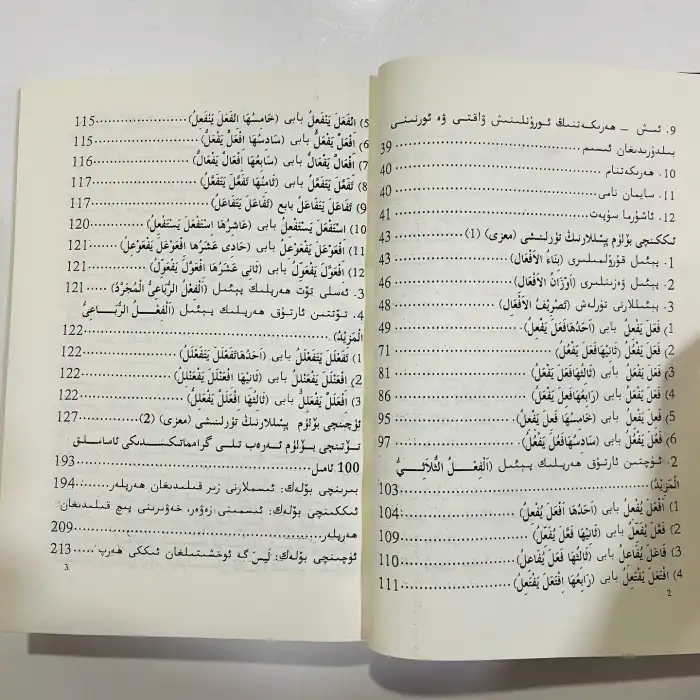 9. ئىش - ھەرىكەتنىڭ ئورۇنلىنىش ۋاقتى ۋە ئورنىنى
بىلدۈرىدىغان ئىسىم ............ 39
10. ھەرىكەتنام ............ 40
11. سايمان نامى ............ 40
12. ئاشۇرما سۈپەت ............ 41
ئىككىنچى بۆلۈم پېئىللارنىڭ تۈرلىنىشى (معزى) (1) ............ 43
1. پېئىل قۇرۇلمىلىرى (بِنَاءُ الْاَفْعَال) ............ 43
2. پېئىل ۋەزىنلىرى (اَوْزَانُ الْاَفْعَال) ............ 46
3. پېئىللارنى تۈرلەش (تَصْرِيْفُ الْاَفْعَال) ............ 48
1) فَعَلَ يَفْعلُ بابى (اَحَدُهَافَعَلَ يَفْعِلُ) ............ 49
2) فَعَلَ يَفْعُلُ بابى (ثَانِيْهَافَعَلَ يَفْعُلُ) ............ 71
3) فَعَلَ يَفْعَلُ بابى (ثَالثُهَافَعَلَ يَفْعَلُ) ............ 81
4) فَعِلَ يَفْعَلُ بابى (رَابِعُهَافَعِلَ يَفْعَلُ) ............ 86
5) فَعِلَ يَفْعِلُ بابى (خَامِسُهَا فَعِلَ يَفْعِلُ) ............ 95
6) فَعُلَ يَفْعُلُ بابى (سَادِسُهَافَعُلَ يَفْعُلُ) ............ 97
2. ئۈچتىن ئارتۇق ھەرپلىك پېئىل (اَلْفِعْــلُ الثُّلاَثِــيُّ
الْمَزِيْدُ) ............ 103
1) اَفْعَلَ يُفْعِلُ بابى (اَحَدُهَا اَفْعَلَ يُفْعِلُ) ............ 104
2) فَعَّلَ يُفَعِّلُ بابى (ثَانِيْهَا فَعَّلَ يُفَعِّلُ) ............ 109
3) فَاعَلَ يُفَاعِلُ بابى (ثَالثُهَا فَاعَلَ يُفَاعِلُ) ............ 110
4) اِفْتَعَلَ يَفْتَعِلُ بابى (رَابِعُهَا اِفْتَعَلَ يَفْتَعِلُ) ............ 111
2
5) اِنْفَعَلَ يَنْفَعِلُ بابى (خَامِسُهَا اِنْفَعَلَ يَنْفَعِلُ) ............ 115
6) اِفْعَلَّ يَفْعَلُّ بابى (سَادِسُهَا اِفْعَلَّ يَفْعَلُّ) ............ 115
7) اِفْعَالَّ يَفْعَالُّ بابى (سَابِعُهَا اِفْعَالَّ يَفْعَالُّ) ............ 116
8) تَفَعَّلَ يَتَفَعَّلُ بابى (ثَامِنُهَا تَفَعَّلَ يَتَفَعَّلُ) ............ 117
9) تَفَاعَلَ يَتَفَاعَلُ بابع (تَفَاعَلَ يَتَفَاعَلُ) ............ 117
10) اسْتَفْعَلَ يَسْتَفْعِلُ بابى (عَاشِرُهَا اسْتَفْعَلَ يَسْتَفْعِلُ) ............ 120
11) اِفْعَوْعَلَ يَفْعَوْعِلُ بابى (حَادِى عَشَرُهَا اِفْعَوْعَلَ يَفْعَوْعِلُ) ............ 121
12) اِفْعَوَّلَ يَفْعَوِّلُ بابى (ثَانِى عَشَرُهَا اِفْعَوَّلَ يَفْعَوِّلُ) ............ 121
3. ئەسلى تۆت ھەرپلىك پېئىل (اَلْفِعْلُ الرُّبَاعِىُّ الْمُجَرَّدُ) ...... 121
4. تۆتتىن ئارتۇق ھەرپلىك پېئىل (اَلْفِعْــلُ الرُّبَــاعِىُّ
الْمَزِيْدُ) ............ 122
1) تَفَعْلَلَ يَتَفَعْلَلُ بابى (اَحَدُهَاتَفَعْلَلَ يَتَفَعْلَلُ) ............ 122
2) اِفْعَنْلَلَ يَفْعَنْلِلُ بابى (ثَانِيْهَا اِفْعَنْلَلَ يَفْعَنْلِلُ) ............ 122
3) اِفْعَلَلَّ يَفْعَلِلُّ بابى (ثَالِثُهَا اِفْعَلَلَّ يَفْعَلِلُّ) ............ 122
ئۈچىنچى بۆلۈم پېئىللارنىڭ تۈرلىنىشى (معزى) (2) ............ 127
تۆتىنچى بۆلۈم ئەرەب تىلى گرامماتىكىسىدىكى ئاساسلىق
100 ئامىل ............ 193
بىرىنچى بۆلەك: ئىسىملارنى زىر قىلىدىغان ھەرپلەر ...... 194
ئىككىنچى بۆلەك: ئىسمىنى زەۋەر، خەۋىرىنى پىچ قىلىدىغان
ھەرپلەر ............ 209
ئۈچىنچى بۆلەك: لَيْسَ گە ئوخشىتىلغان ئىككى ھەرپ ..... 213
3